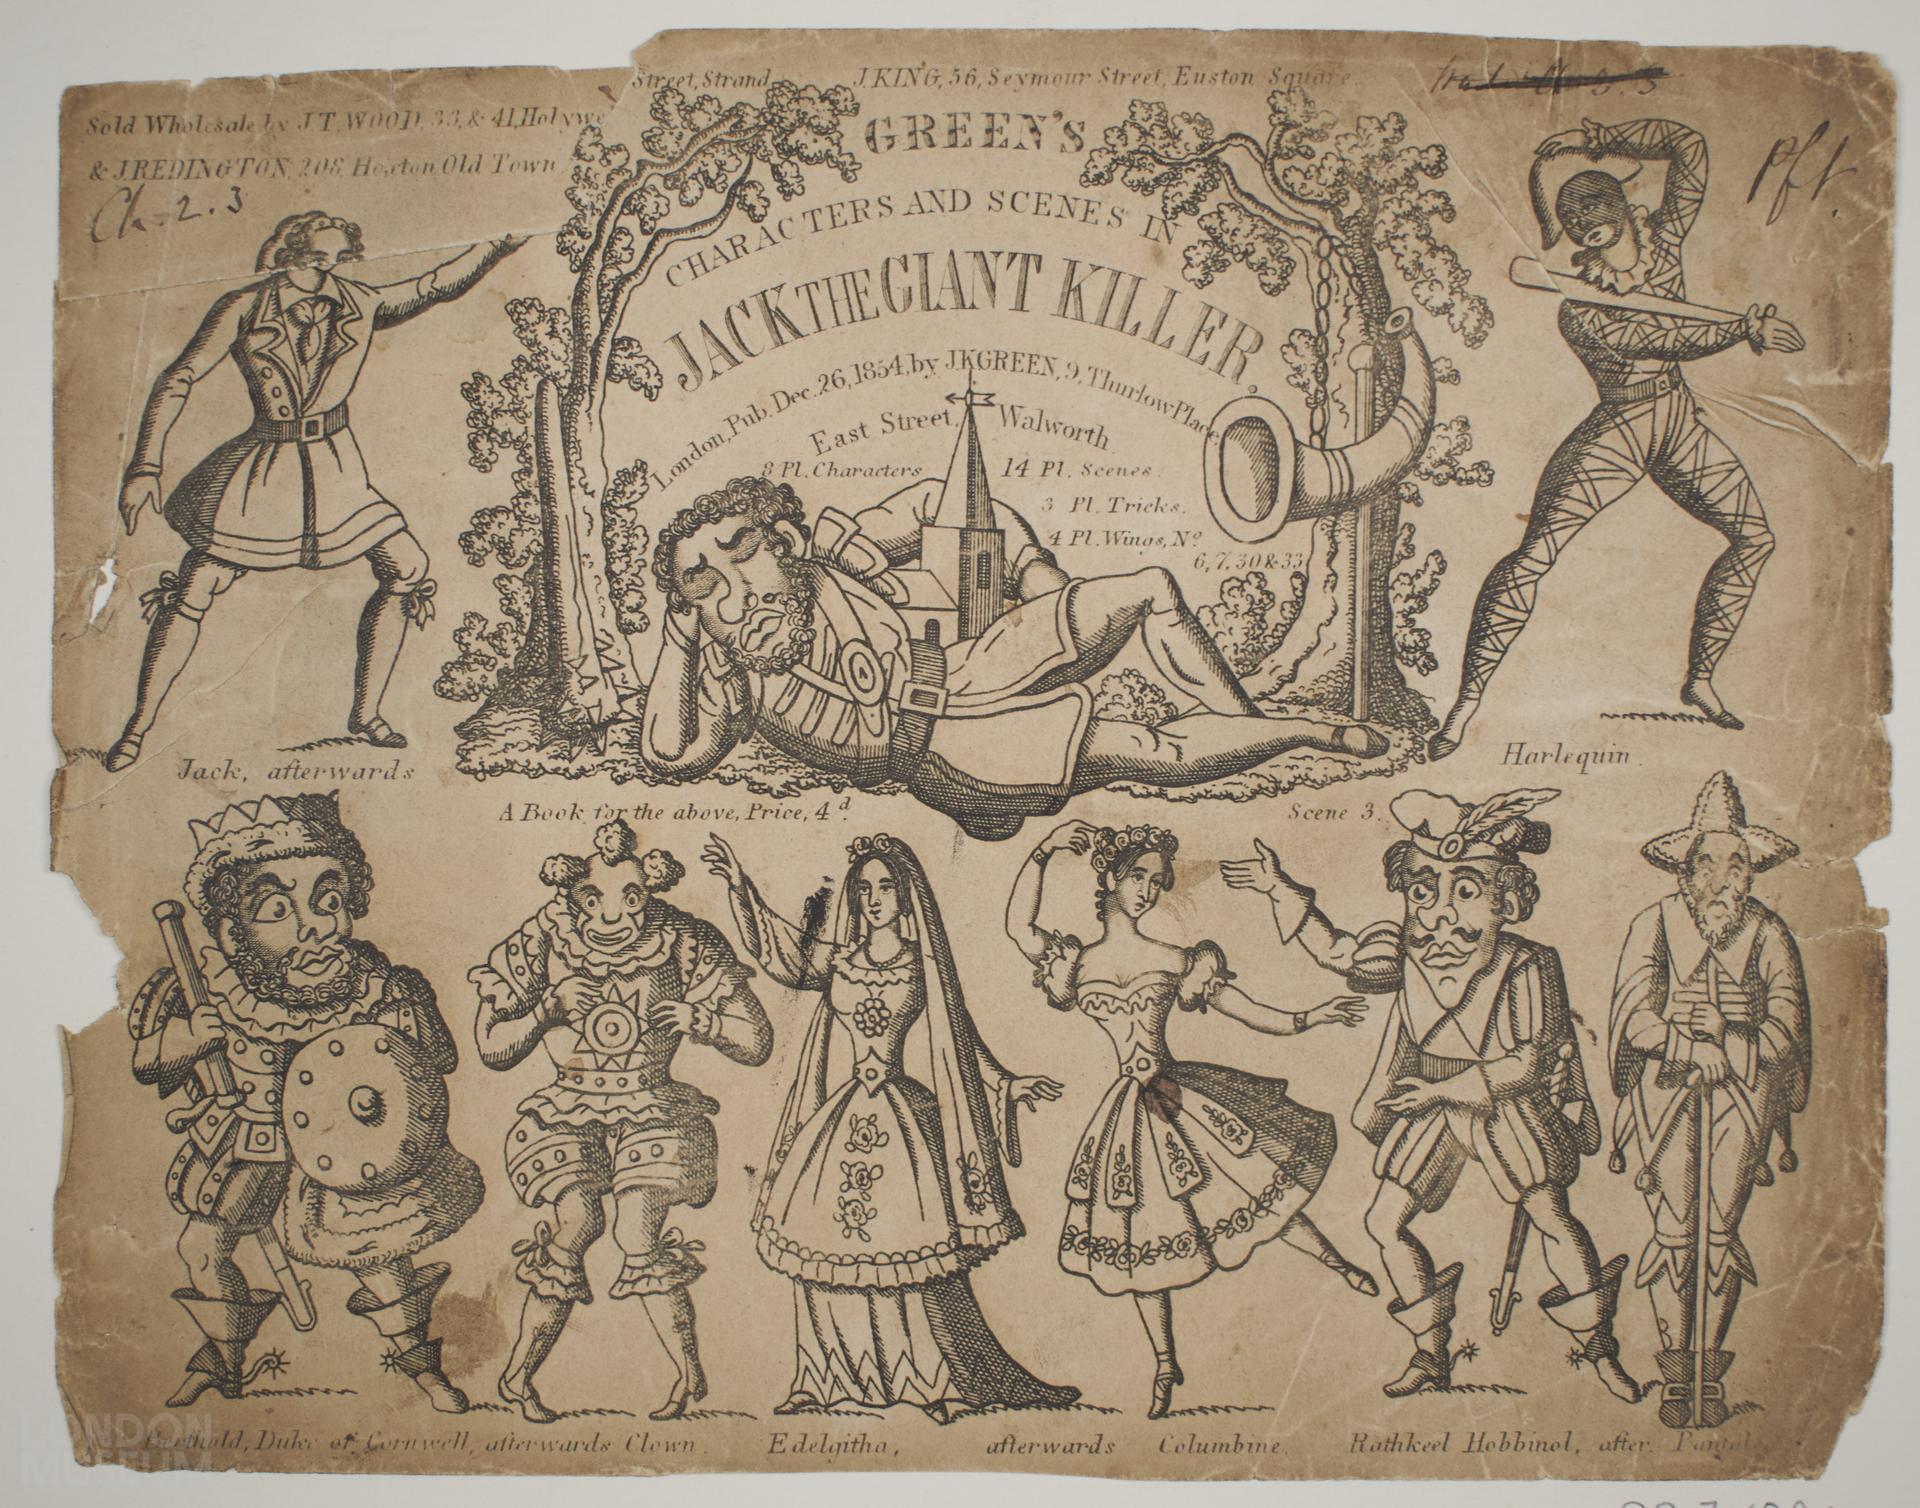 Street, Strand. J. KING, 56, Seymour Street, Euston Square.
Sold Wholesale by J.T. WOOD, 33, & 41, Holywe
& J. REDINGTON, 208, Hoxton Old Town
Ch. 2. 3
GREEN'S
CHARACTERS AND SCENES IN
JACK THE GIANT KILLER.
London, Pub. Dec. 26, 1854, by J.K. GREEN, 9, Thurlow Place,
East Street, Walworth.
8 Pl. Characters 14 Pl. Scenes.
3 Pl. Tricks.
4 Pl. Wings, No.
6, 7, 30 & 33
Jack, afterwards Harlequin.
A Book for the above, Price, 4d. Scene 3.
Berthold, Duke of Cornwell, afterwards Clown. Edelgitha, afterwards Columbine. Rathkeel Hobbinol, after.
LONDON
MUSEUM